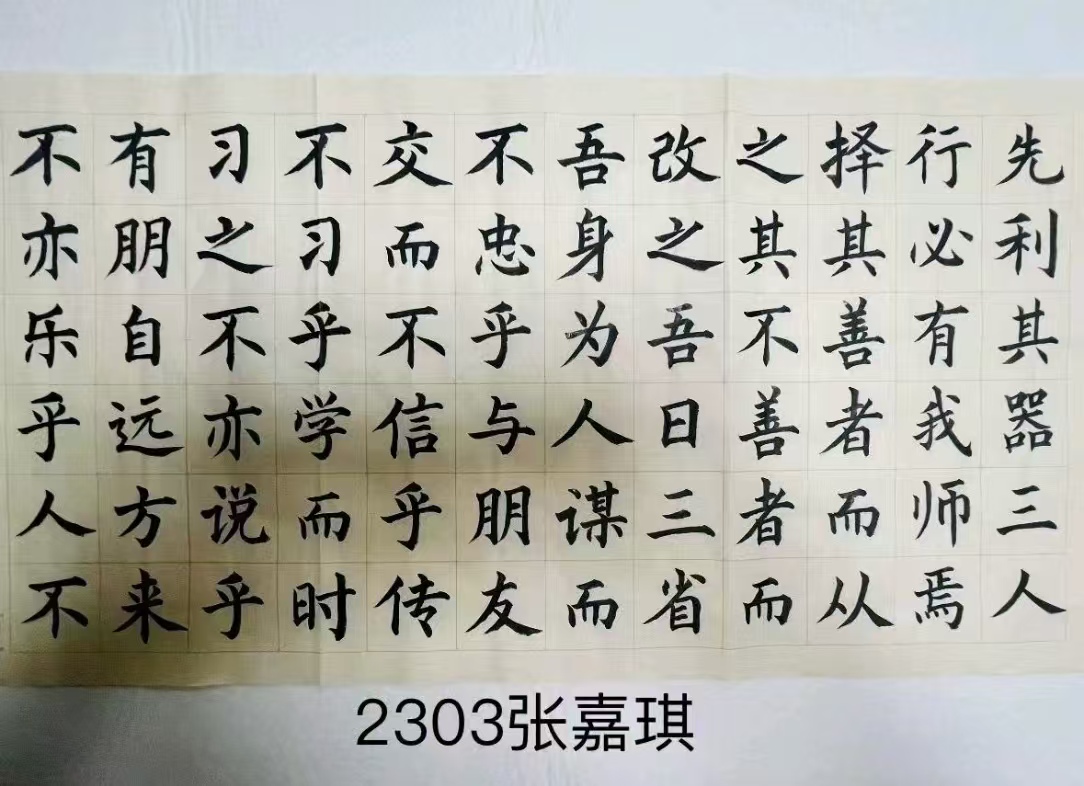 先利其器三人
行必有我师焉
择其善者而从
之其不善者而
改之吾日三省
吾身为人谋而
不忠乎与朋友
交而不信乎传
不习乎学而时
习之不亦说乎
有朋自远方来
不亦乐乎人不
2303张嘉琪